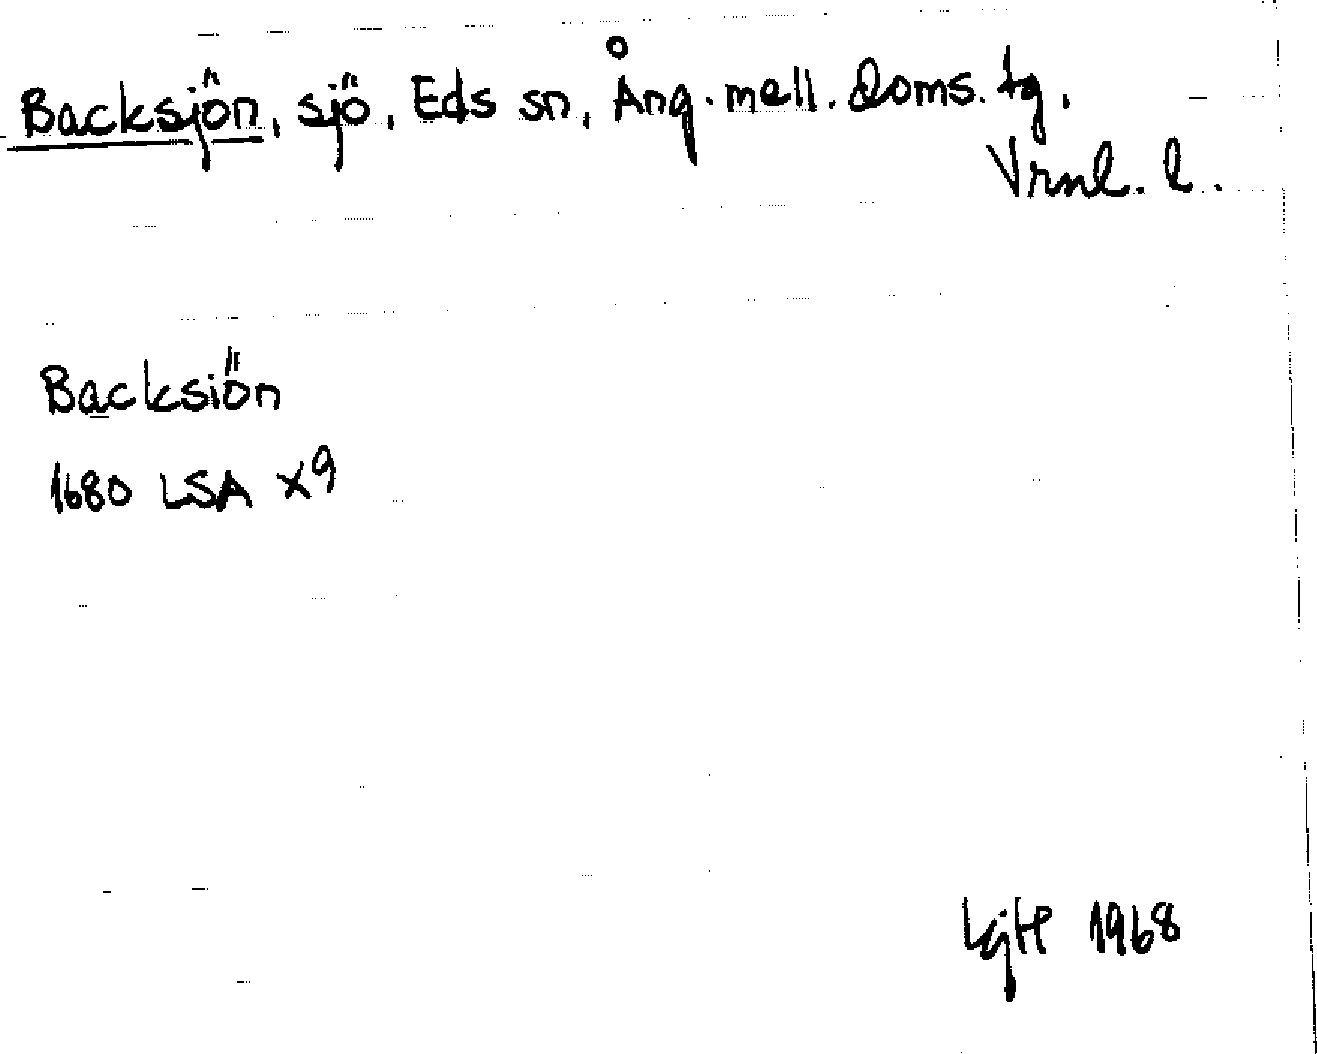 Backsjön, sjö, Eds sn, Ång. mell. doms. tg,
Vrml. l.
Backsiön
1680 LSA X9
1968